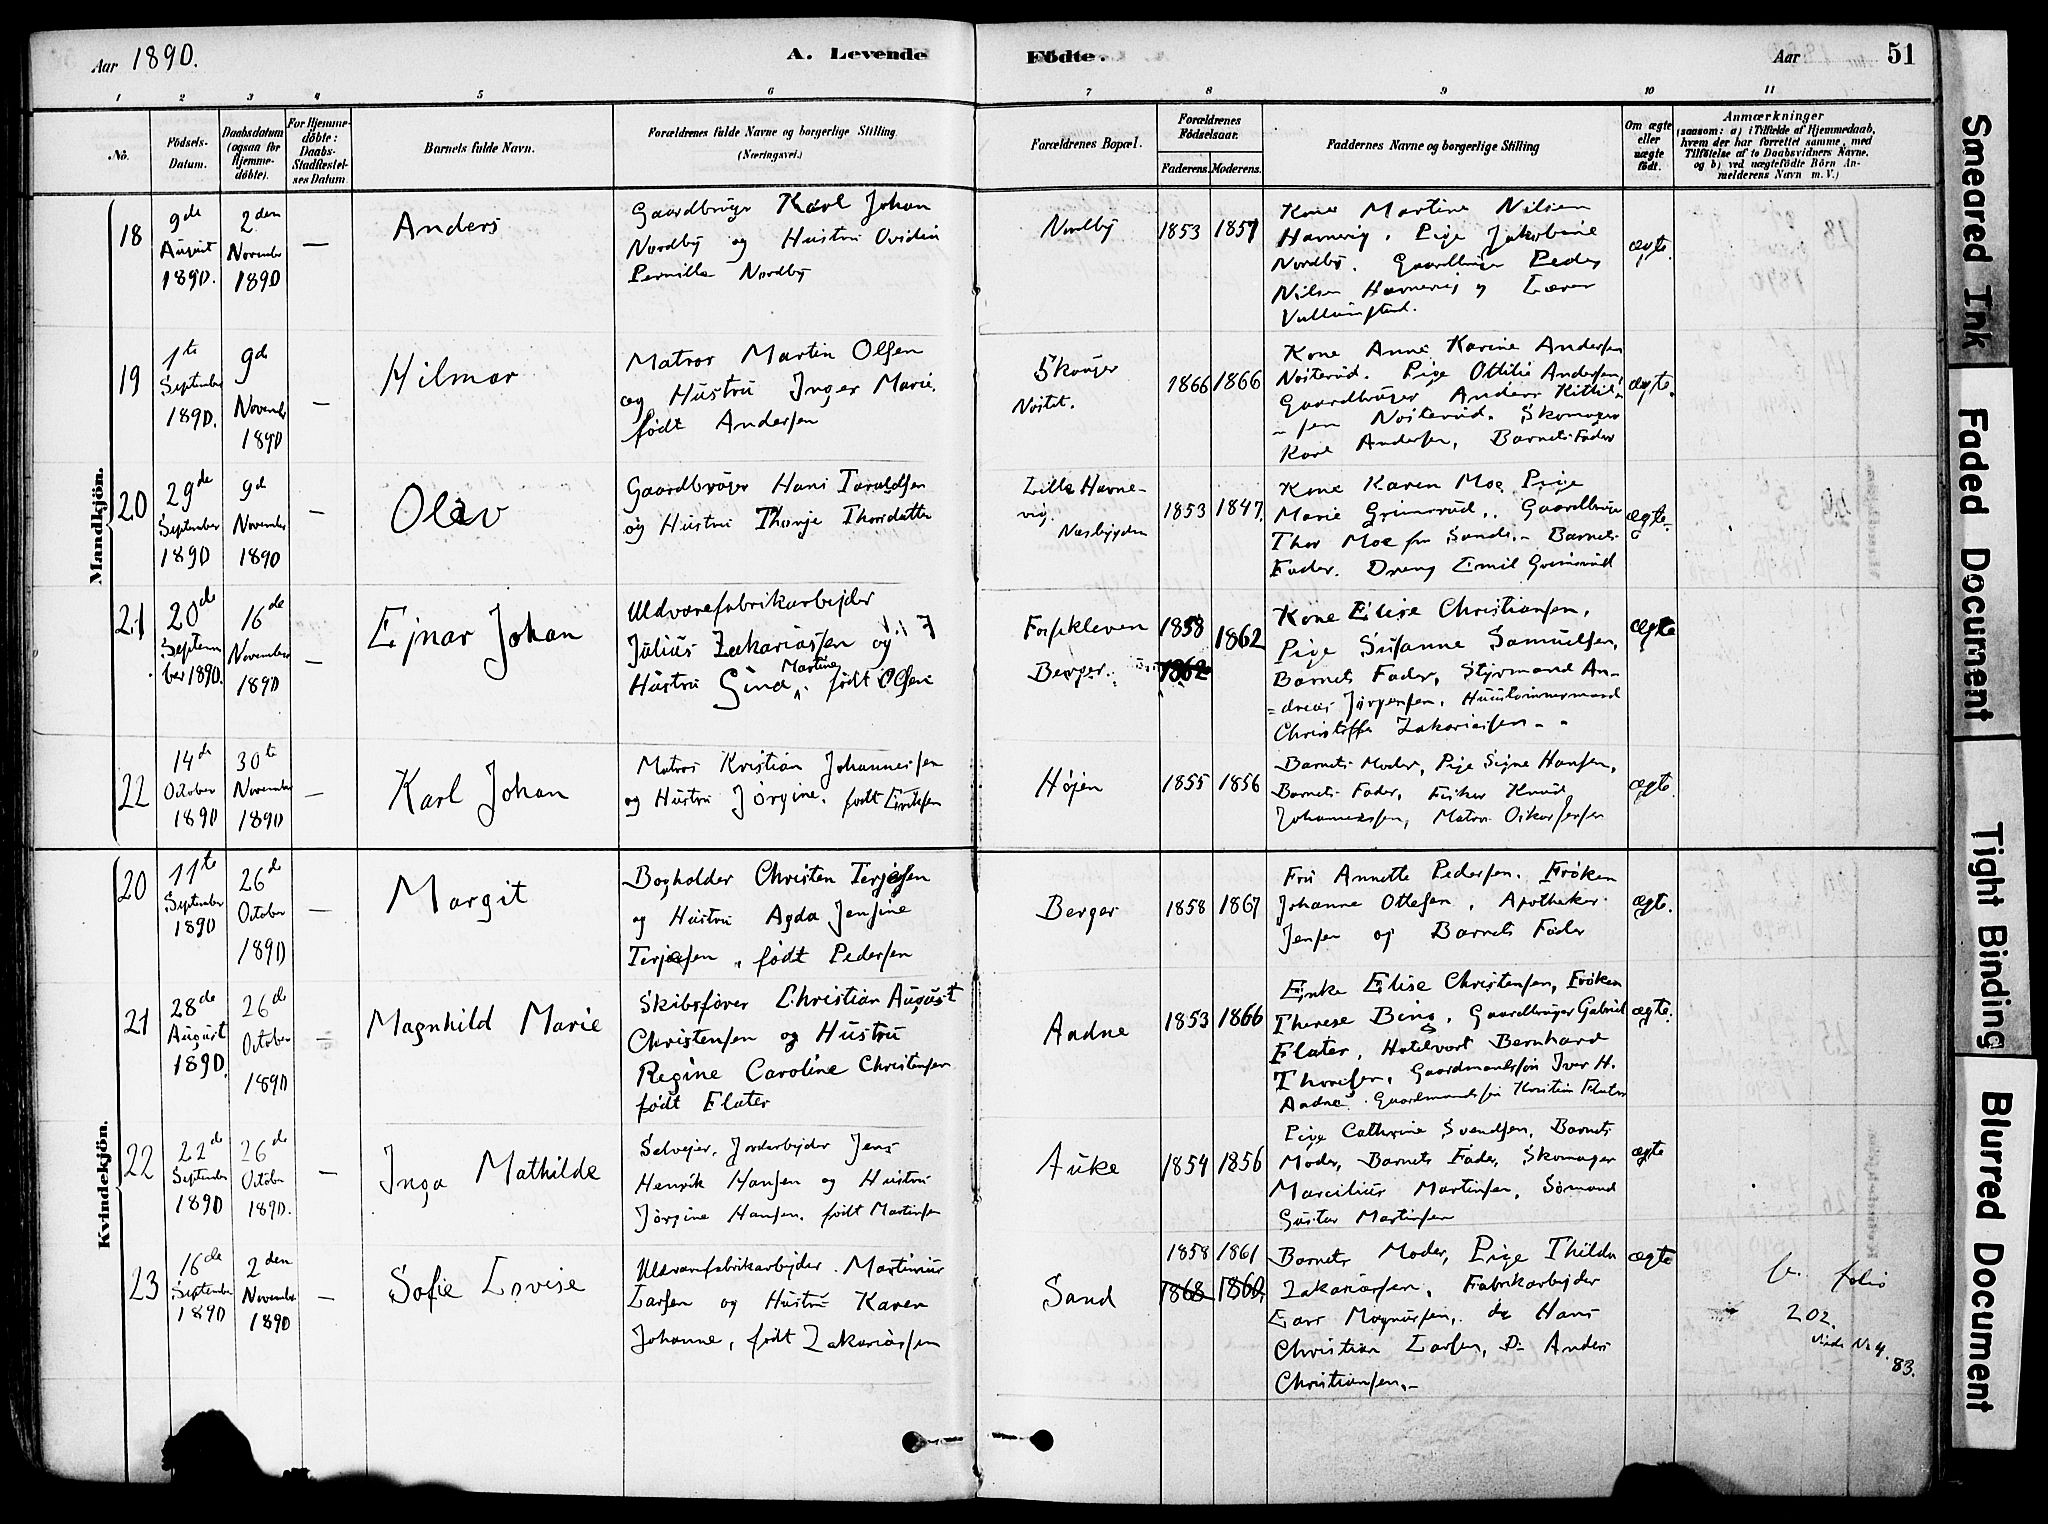 Aar 1890.
A. Levende Fødte.
Aar
51
1 2 3 4 5 6 7 8 9 10 11
No.
Födsels-Datum.
Daabsdatum (ogsaa for Hjemme-döbte).
For Hjemme-döbte: Daabs-Stadfæstel-ses Datum.
Barnets fulde Navn.
Forældrenes fulde Navne og borgerlige Stilling.
(Næringsvei.)
Forældrenes Bopæl.
Forældrenes Födselsaar.
Faderens. Moderens.
Faddernes Navne og borgerlige Stilling
Om ægte eller uægte födt.
Anmærkninger
(saasom: a) i Tilfælde af Hjemmedaab,
hvem der har forrettet samme, med
Tilföielse af to Daabsvidners Navne,
og b) ved uægtefödte Börn An-
melderens Navn m. V.)
Mandkjön.
18
9de August 1890.
2den November 1890
—
Anders
Gaardbruger Karl Johan
Nordby og Hustru Ovidia
Pernille Nordby
Nordby
1853 1857
Kone Martine Nilsen
Havnevig, Pige Jakobine
Nordby. Gaardbruger Peder
Nilsen Havnevig og Lærer
ægte.
19
1te September 1890.
9de November 1890
—
Hilmar
Matros Martin Olsen
og Hustru Inger Marie.
født Andersen
Skouger
Nøstet.
1866 1866
Kone Anne Karine Andersen
Nøsterud. Pige Ottilie Andersen,
Gaardbruger Anders Kittil-
-sen Nøsterud. Skomager
Karl Andersen, Barnets Fader
ægte.
20
29de September 1890
9de November 1890
—
Olav
Gaardbruger Hans Taraldsen
og Hustru Thorje Thorsdatter
Lille Havne-
vig.
Næsbygden
1853 1847.
Kone Karen Moe, Pige
Marie Grimsrud, Gaardbruger
Thor Moe fra Sande. Barnets
Fader. Dreng Emil Grimsrud
ægte
21
20de September 1890.
16de November 1890
—
Ejnar Johan
Uldvarefabrikarbejder
Julius Zakariassen og
Hustru Gina Martine, født Olsen
Fossekleven
Berger.
1858 1862
1862
Kone Elise Christiansen,
Pige Susanne Samuelsen,
Barnets Fader, Styrmand An-
=dreas Jørgensen, Huustømmermand
Christoffer Zakariassen
ægte
22
14de October 1890
30te November 1890
—
Karl Johan
Matros Kristian Johannessen
og Hustru Jørgine. født Eriksen
Højen
1855 1856
Barnets Moder, Pige Signe Hansen,
Barnets Fader, Fisker Knud
Johannessen, Matros Oskar Jensen
ægte.
Kvindekjön.
20
11te September 1890
26de October 1890
—
Margit
Bogholder Christen Terjesen
og Hustru Agda Jensine
Terjesen, født Pedersen
Berger
1858 1867
Fru Annette Pedersen. Frøken
Johanne Ottesen, Apotheker
Jensen og Barnets Fader
ægte.
21
28de August 1890.
26de October 1890
—
Magnhild Marie
Skibsfører Christian August
Christensen og Hustru
Regine Caroline Christensen
født Flater
Aadne
1853 1866
Enke Elise Christensen, Frøken
Therese Bing, Gaardbruger Gabriel
Flater, Hotelvært Bernhard
Thoresen, Gaardmandssøn Iver H.
Aadne. Gaardmandssøn Kristian Flater
ægte.
22
22de September 1890
26de October 1890.
—
Inga Mathilde
Selvejer, Jordarbejder Jens
Henrik Hansen og Hustru
Jørgine Hansen. født Martinsen
Auke
1854 1856
Pige Cathrine Svendsen, Barnets
Moder, Barnets Fader, Skomager
Marcilius Martinsen, Sømand
Gustav Martinsen
ægte
23
16de September 1890
2den November 1890
—
Sofie Lovise
Uldvarefabrikarbejder. Martinius
Larsen og Hustru Karen
Johanne, født Zakariassen
Sand
1858 1861
1868 1860.
Barnets Moder, Pige Thilda
Zakariassen, Fabrikarbejder
Lars Magnussen, do Hans
Christian Larsen, Do Anders
Christiansen.
ægte
folio
202.
Nr 4.
83.
Smeared Ink
Faded Document
Tight Binding
Blurred Document